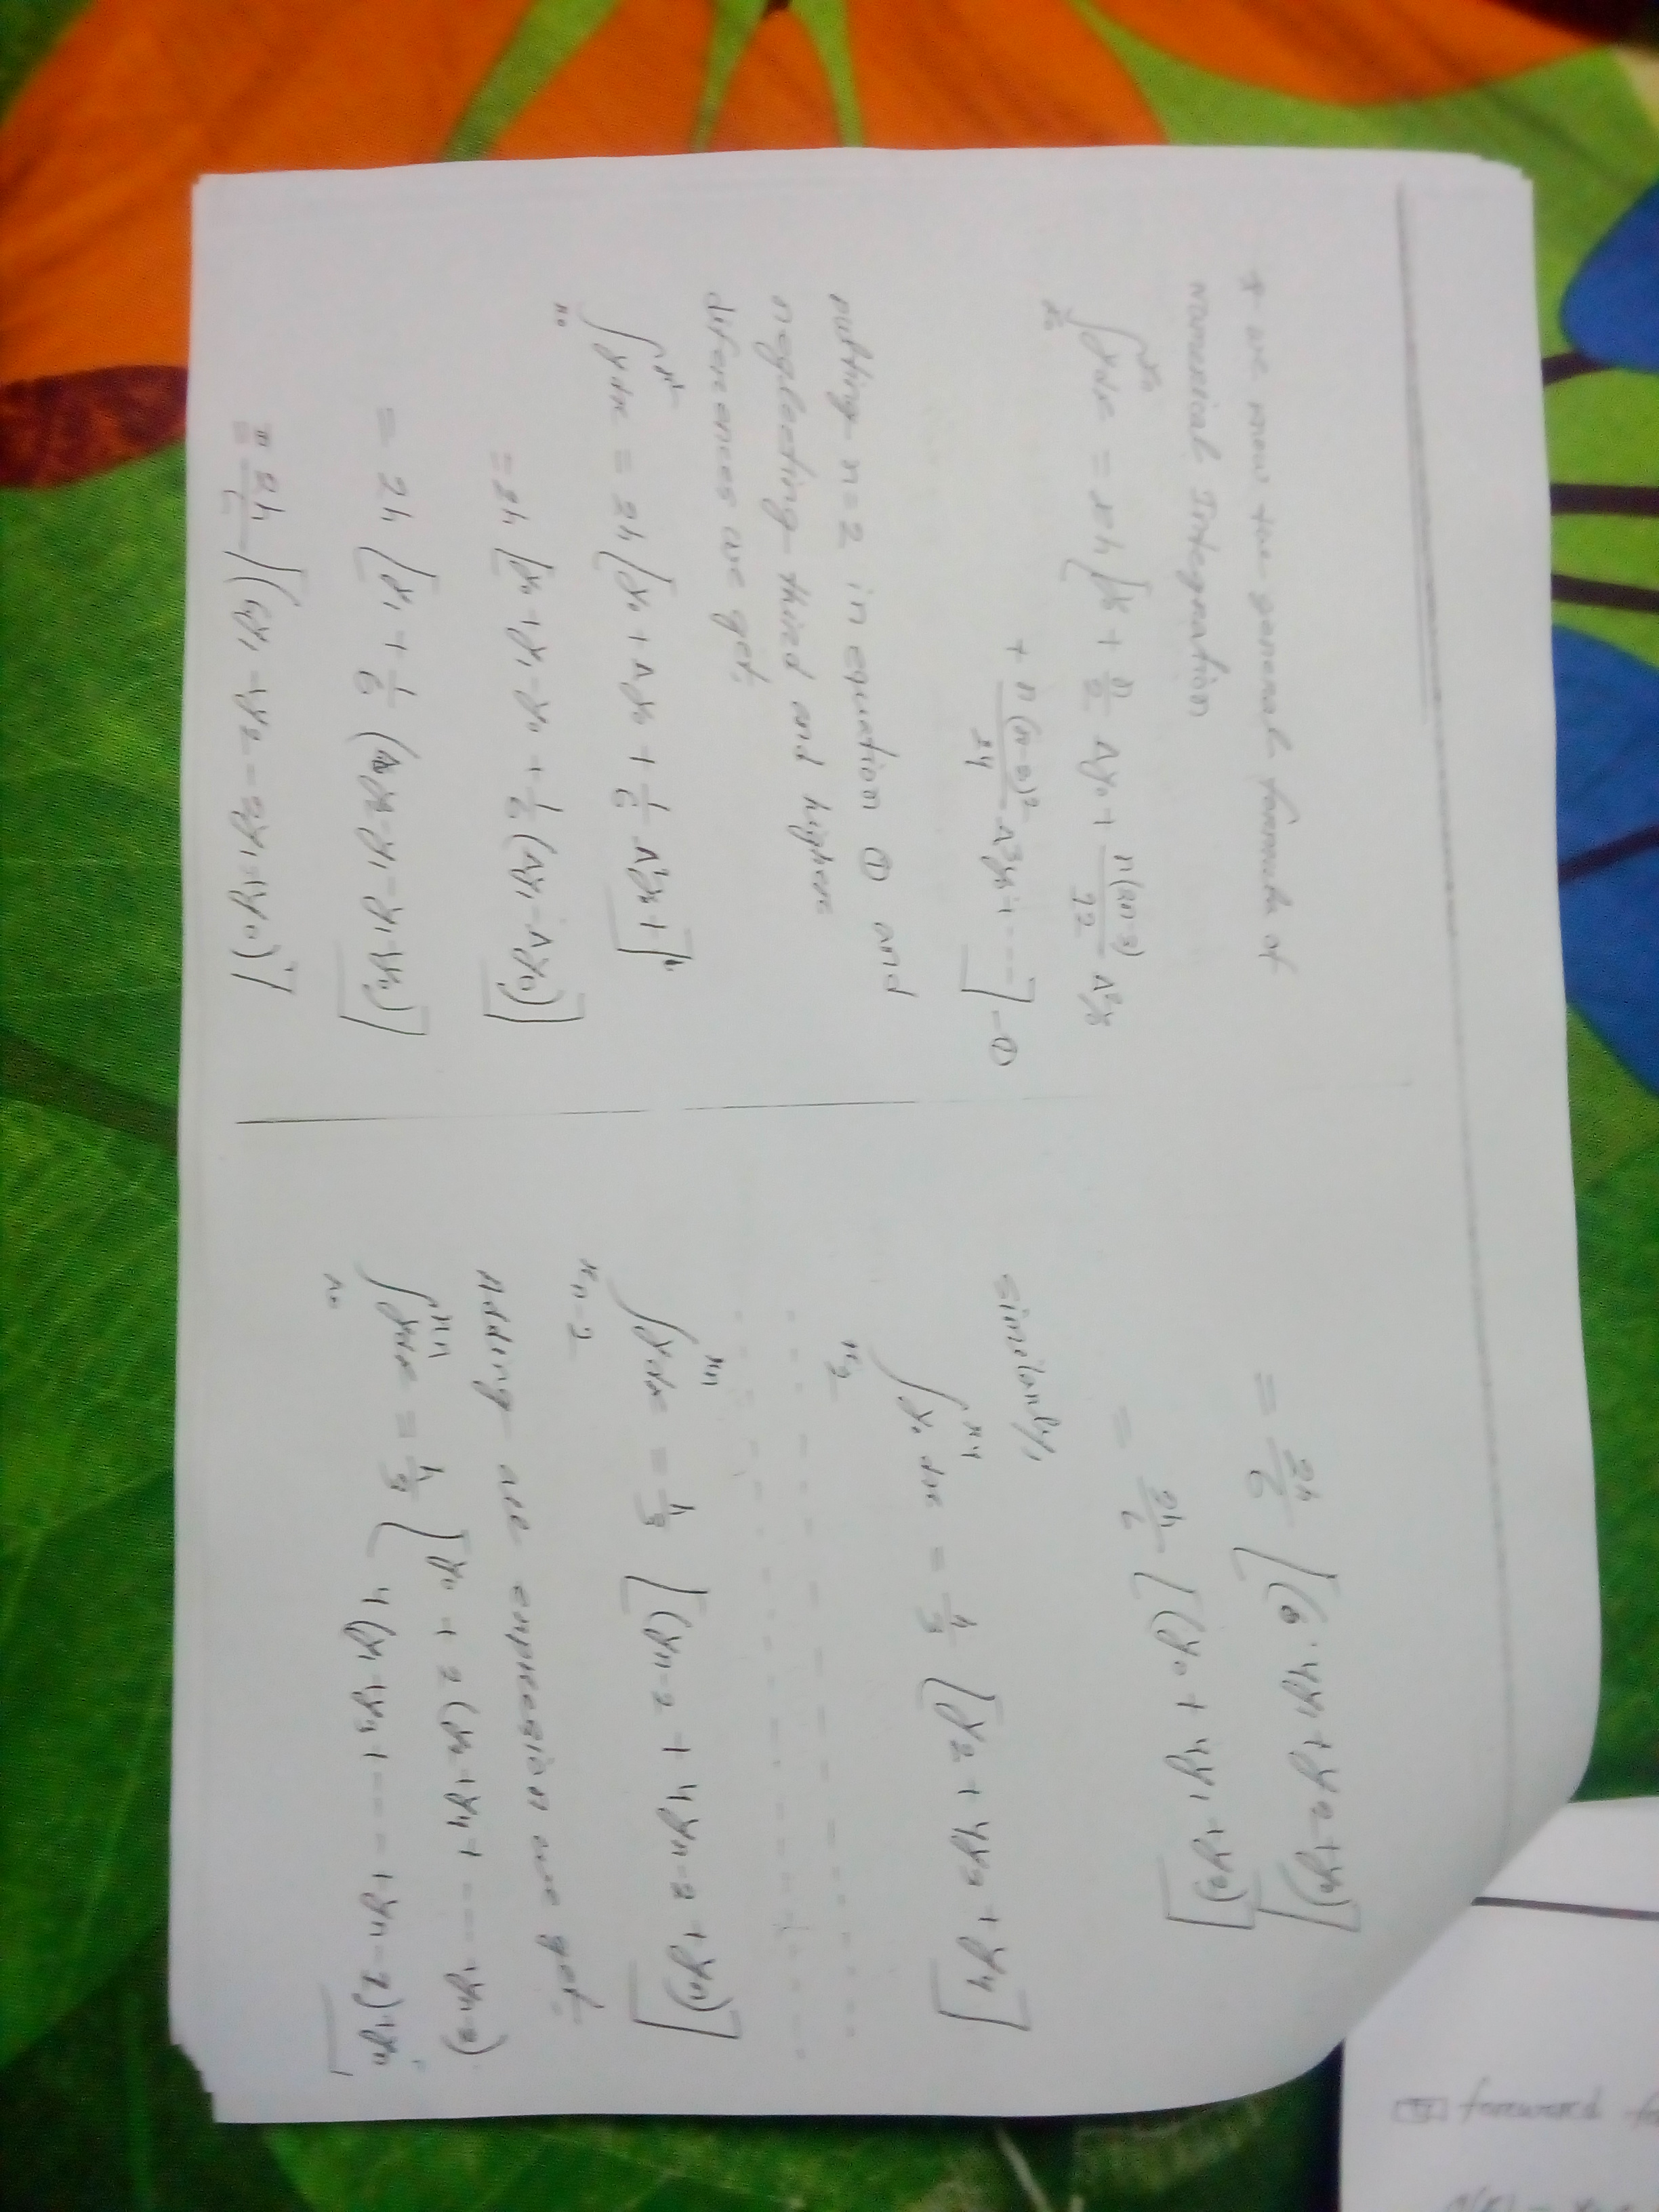 * we know the general formula of
Numerical Integration
∫ₓ₀ˣⁿ ydx = nh [y₀ + n/2 Δy₀ + n(2n-3)/12 Δ²y₀
+ n(n-2)²/24 Δ³y₀ + ---] - ①
putting n=2 in equation ① and
neglecting third and higher
diferences we get,
∫ₓ₀ˣ² ydx = 2h [y₀ + Δy₀ + 1/6 Δ²y₀ + ]
= 2h [y₀ + y₁ - y₀ + 1/6 (Δy₁ - Δy₀)]
= 2h [y₁ + 1/6 (y₂ - y₁ - y₁ + y₀)]
= 2h/6 [(6y₁ + y₂ - 2y₁ + y₀)]
= 2h/6 [( 4y₁ + y₂ + y₀)]
= 2h/6 [(y₀ + 4y₁ + y₂)]
similarly,
∫ₓ₂ˣ⁴ y. dx = h/3 [y₂ + 4y₃ + y₄]
∫ₓₙ₋₂ˣⁿ ydx = h/3 [(yn-2 + 4yn-1 + yn)]
Adding all expression we get
∫ₓ₀ˣⁿ ydx = h/3 [y₀ + 2(y₂ + y₄ + --- yn-2)
4(y₁ + y₃ + --- + yn-1) + yn]
forward